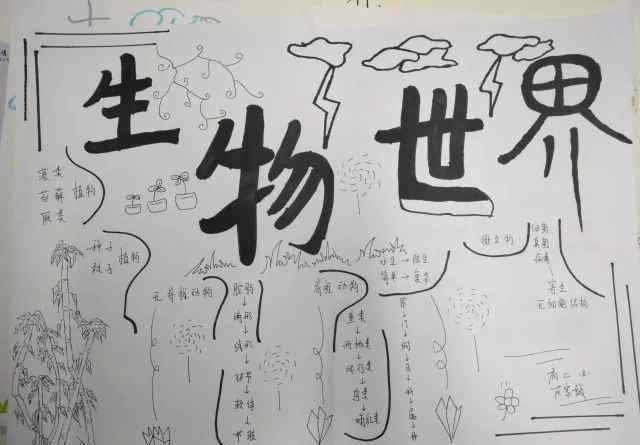 生物世界
藻类
苔藓
蕨类
植物
种子
植物
无脊椎动物
腔肠
扁形
线形
环节
软体
节肢
脊椎动物
鱼类
两栖类
爬行类
鸟类
哺乳类
水生→陆生
简单→复杂
界
门
纲
目
科
属
种
微生物
细菌
真菌
病毒
寄生
无细胞结构